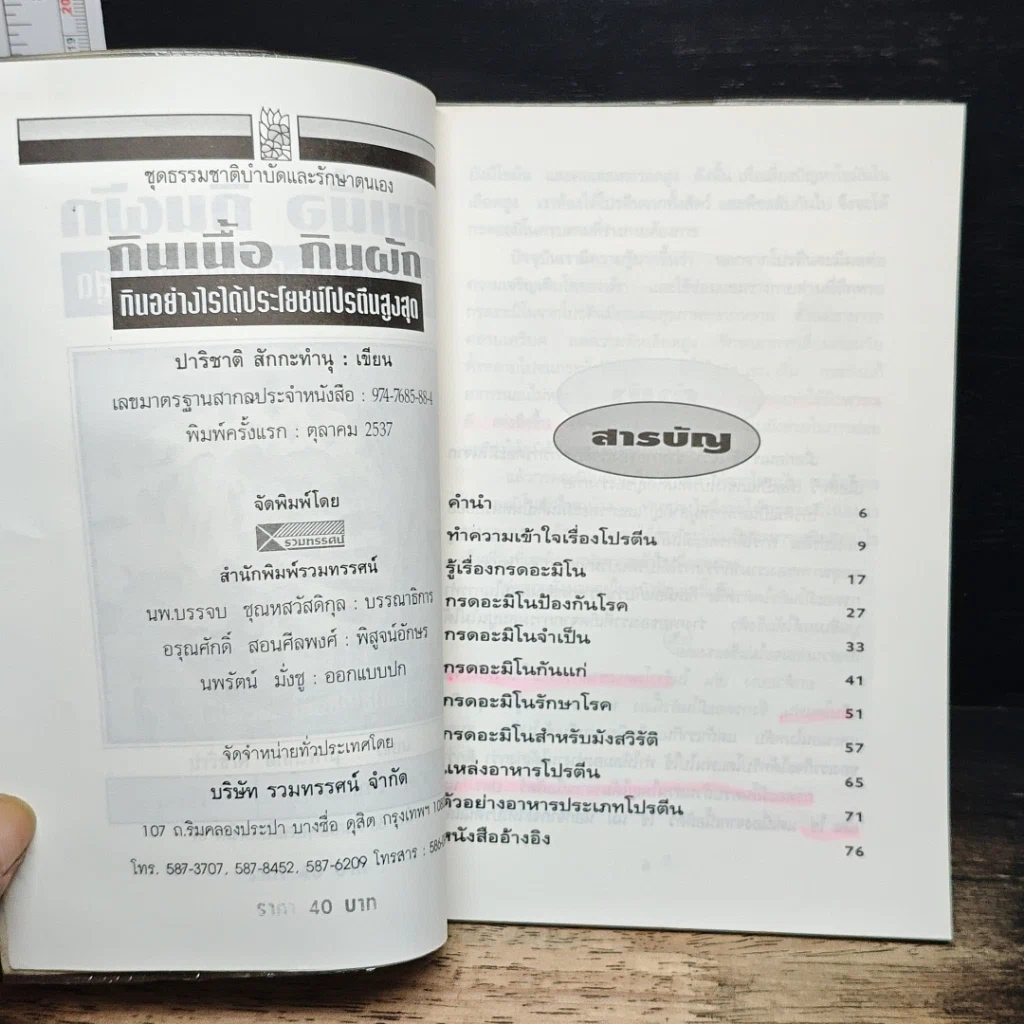 ชุดธรรมชาติบำบัดและรักษาตนเอง
กินเนื้อ กินผัก
กินอย่างไรได้ประโยชน์โปรตีนสูงสุด
ปาริชาติ สักกะทำนุ : เขียน
เลขมาตรฐานสากลประจำหนังสือ : 974-7685-88-4
พิมพ์ครั้งแรก : ตุลาคม 2537
จัดพิมพ์โดย
รวมทรรศน์
สำนักพิมพ์รวมทรรศน์
นพ.บรรจบ ชุณหสวัสดิกุล : บรรณาธิการ
อรุณศักดิ์ สอนศีลพงศ์ : พิสูจน์อักษร
นพรัตน์ มั่งชู : ออกแบบปก
จัดจำหน่ายทั่วประเทศโดย
บริษัท รวมทรรศน์ จำกัด
107 ถ.ริมคลองประปา บางซื่อ ดุสิต กรุงเทพฯ
โทร. 587-3707, 587-8452, 587-6209 โทรสาร :
ราคา 40 บาท
สารบัญ
คำนำ 6
ทำความเข้าใจเรื่องโปรตีน 9
รู้เรื่องกรดอะมิโน 17
กรดอะมิโนป้องกันโรค 27
กรดอะมิโนจำเป็น 33
กรดอะมิโนกันแก่ 41
กรดอะมิโนรักษาโรค 51
กรดอะมิโนสำหรับมังสวิรัติ 57
แหล่งอาหารโปรตีน 65
ตัวอย่างอาหารประเภทโปรตีน 71
หนังสืออ้างอิง 76